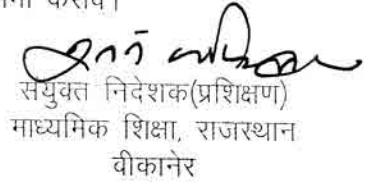 करावें।
संयुक्त निदेशक(प्रशिक्षण)
माध्यमिक शिक्षा, राजस्थान
बीकानेर